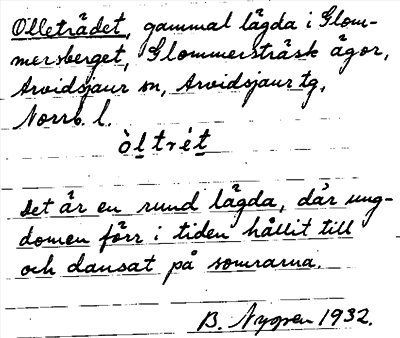 Olleträdet, gammal lägda i Glom-
mersberget, Glommersträsk ägor,
Arvidsjaur sn, Arvidsjaur tg,
Norrb. l.
òltrét
Det är en rund lägda, där ung-
domen förr i tiden hållit till
och dansat på somrarna.
B. Nygren 1932.